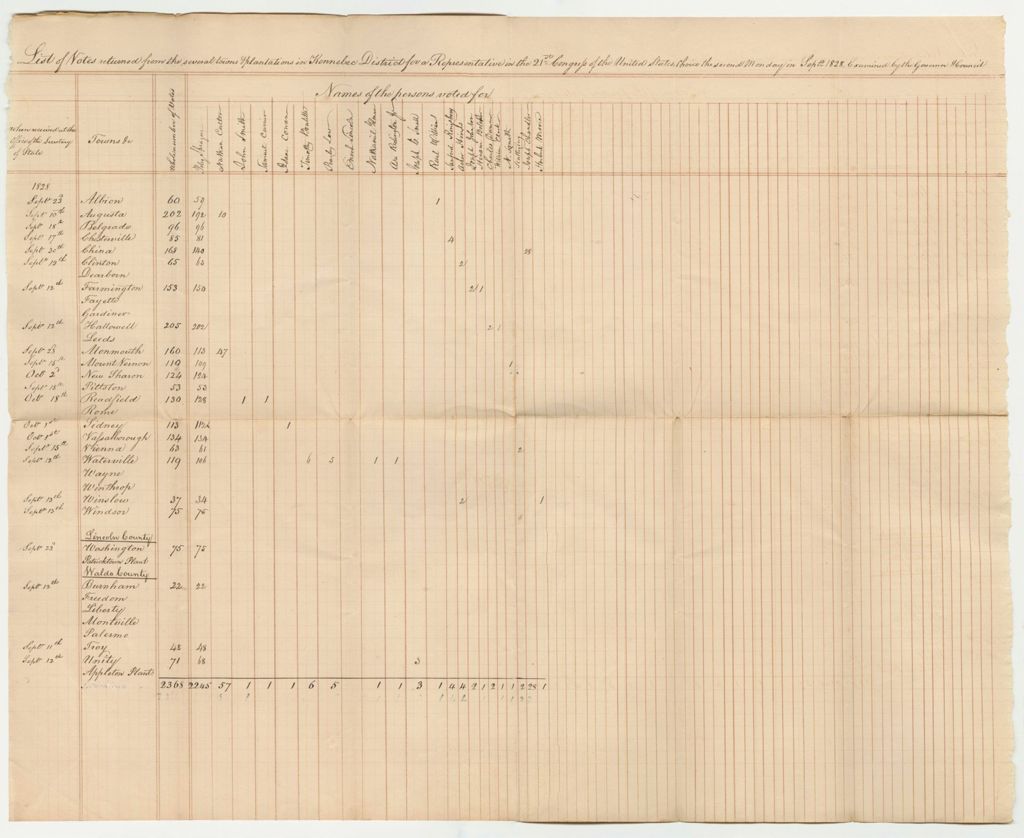 List of Votes returned from the several towns & plantations in Kennebec District for a Representative in the 21st Congress of the United States, thrice the second Monday in Sept. 1828. Examined by the Governor & Council
Names of the persons voted for
When received at the Office of the Secretary of State
Towns &c
Whole number of Votes
Peleg Sprague
Nathan Cutler
John Smith
Timothy Boutelle
Joseph Chandler
1828
Sept 23d Albion 60 59 1
Sept 10th Augusta 202 192 10
Sept 18th Belgrade 96 96
Sept 17th Chesterville 85 81 4
Sept 30th China 168 140 28
Sept 13th Clinton 65 63 2
Dearborn
Sept 12th Farmington 153 150 2 1
Fayette
Gardiner
Sept 12th Hallowell 205 202 2 1
Leeds
Sept 23 Monmouth 160 113 47
Sept 15th Mount Vernon 110 109 1
Oct 2d New Sharon 124 124
Sept 13th Pittston 53 53
Oct 18th Readfield 130 128 1 1
Rome
Oct 1st Sidney 113 112 1
Oct 1st Vassalborough 134 134
Sept 15th Vienna 63 61 2
Sept 12th Waterville 119 106 6 5 1 1
Wayne
Winthrop
Sept 13th Winslow 37 34 2 1
Sept 13th Windsor 75 75
Lincoln County
Sept 22d Washington 75 75
Patricktown Plant
Waldo County
Sept 12th Burnham 22 22
Freedom
Liberty
Montville
Palermo
Sept 11th Troy 48 48
Sept 12th Unity 71 68 3
Appleton Plant
2368 2245 57 1 1 1 6 5 1 1 3 1 4 4 2 1 2 1 1 2 28 1